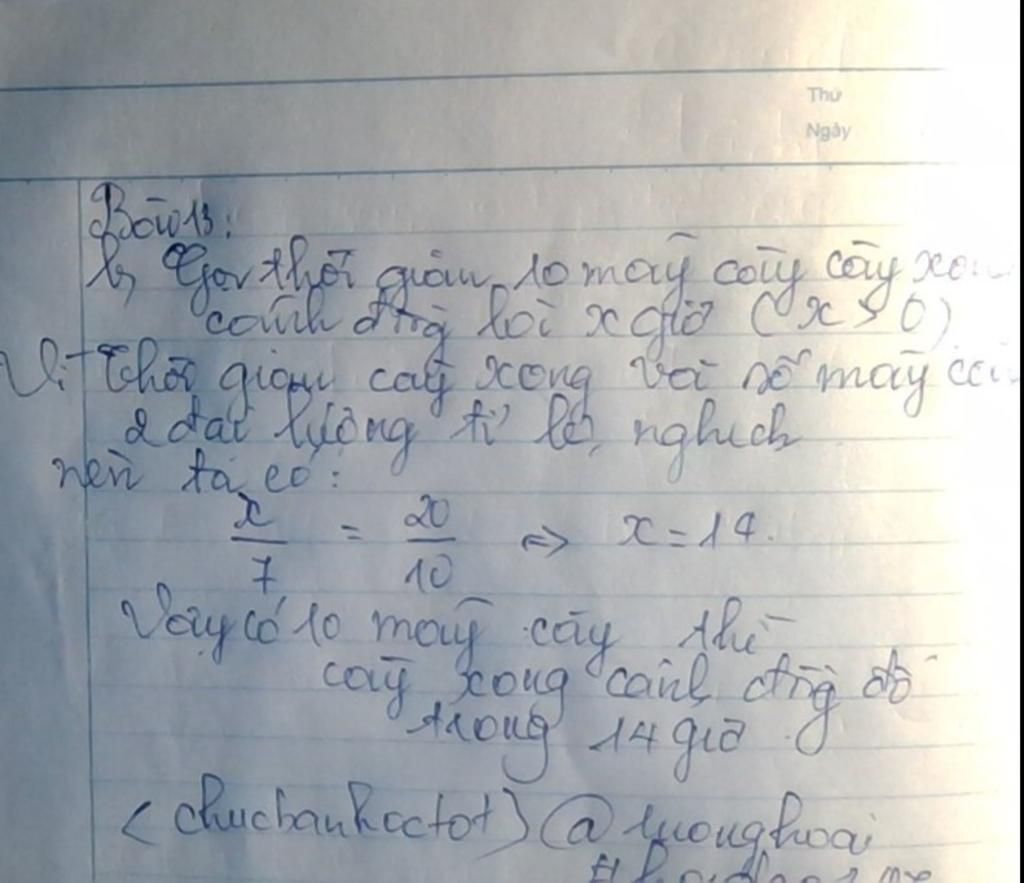 Thứ
Ngày
Bài 13:
b, Gọi thời gian 10 máy cày cày
cánh đồng là x giờ (x > 0)
Vì thời gian cày xong và số máy
2 đại lượng tỉ lệ nghịch
nên ta có:
x/7 = 20/10 => x = 14.
Vậy có 10 máy cày thì
cày xong cánh đồng đó
trong 14 giờ.
<chucbanhoctot> @luonghoai